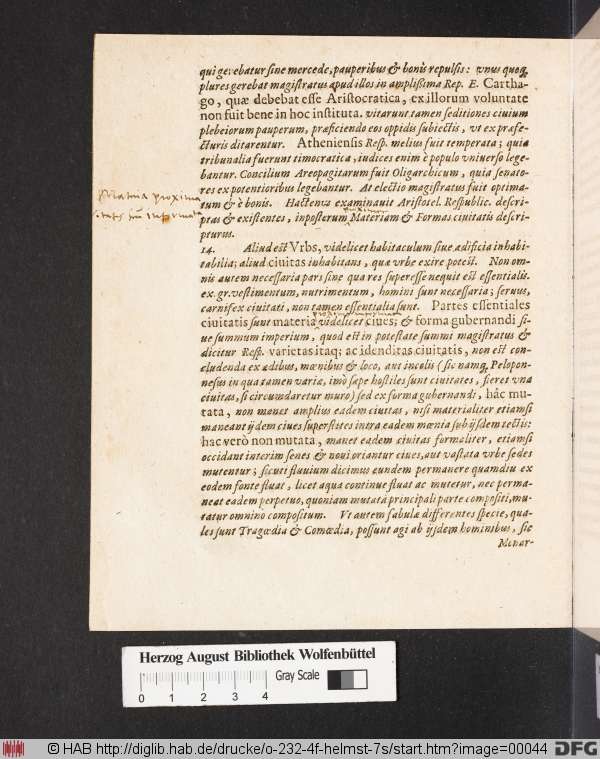 qui gerebatur sine mercede, pauperibus & bonis repulsis: vnus quoq;
plures gerebat magistratus apud illos in amplißima Rep. E. Cartha-
go, quæ debebat esse Aristocratica, ex illorum voluntate
non fuit bene in hoc instituta. vitarunt tamen seditiones ciuium
plebeiorum pauperum, præficiendo eos oppidis subiectis, vt ex præfe-
cturis ditarentur. Atheniensis Resp. melius fuit temperata; quia
tribunalia fuerunt timocratica, iudices enim è populo vniuerso lege-
bantur. Concilium Areopagitarum fuit Oligarchicum, quia senato-
res ex potentioribus legebantur. At electio magistratus fuit optima-
tum & è bonis. Hactenus examinauit Aristotel. Respublic. descri-
ptas & existentes, inposterum Materiam & Formas ciuitatis descri-
pturus.
Materia proxima
14. Aliud est Vrbs, videlicet habitaculum siue ædificia inhabi-
tabilia; aliud ciuitas inhabitans, quæ vrbe exire potest. Non om-
nis autem necessaria pars sine qua res superesse nequit est essentialis.
ex. gr. vestimentum, nutrimentum, homini sunt necessaria; seruus,
carnifex ciuitati, non tamen essentialia sunt. Partes essentiales
ciuitatis sunt materia videlicet ciues; & forma gubernandi si-
ue summum imperium, quod est in potestate summi magistratus &
dicitur Resp. varietas itaq; ac idenditas ciuitatis, non est con-
cludenda ex ædibus, mœnibus & loco, aut incolis (sic namq; Pelopon-
nesus in qua tamen variæ, imò sæpe hostiles sunt ciuitates, fieret vna
ciuitas, si circumdaretur muro) sed ex forma gubernandi, hâc mu-
tata, non manet amplius eadem ciuitas, nisi materialiter etiamsi
maneant ijdem ciues superstites intra eadem mœnia sub ijsdem tectis:
hac verò non mutata, manet eadem ciuitas formaliter, etiamsi
occidant interim senes & noui oriantur ciues, aut vastata vrbe sedes
mutentur; sicuti fluuium dicimus eundem permanere quamdiu ex
eodem fonte fluat, licet aqua continue fluat ac mutetur, nec perma-
neat eadem perpetuo, quoniam mutatâ principali parte compositi, mu-
tatur omninò compositum. Vt autem fabulæ differentes specie, qua-
les sunt Tragœdia & Comœdia, possunt agi ab ijsdem hominibus, sic
Monar-
Herzog August Bibliothek Wolfenbüttel
0 1 2 3 4 Gray Scale
© HAB http://diglib.hab.de/drucke/o-232-4f-helmst-7s/start.htm?image=00044 DFG